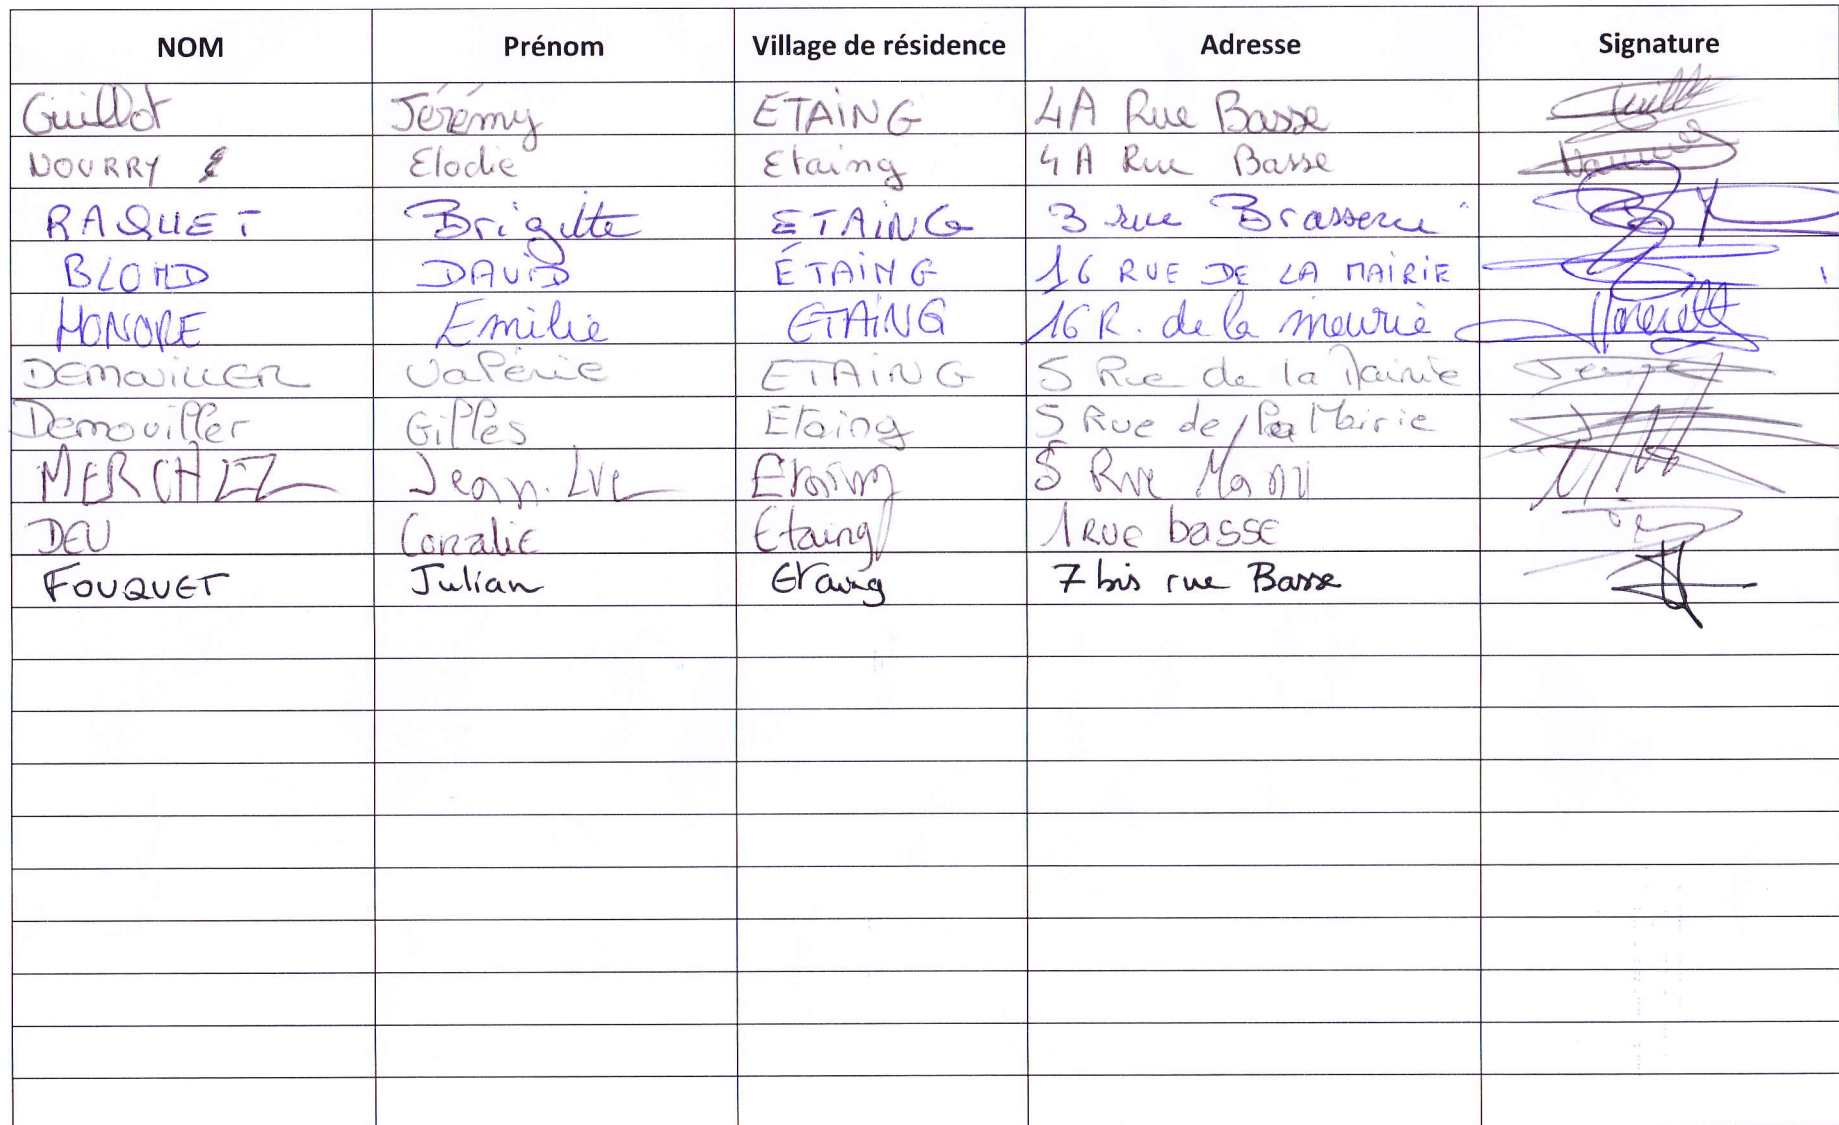 NOM Prénom Village de résidence Adresse Signature
Guillot Jérémy ETAING 4A Rue Basse
NOURRY Elodie Etaing 4 A Rue Basse
RAQUET Brigitte ETAING 3 rue Brasserie
BLOND DAVID ÉTAING 16 RUE DE LA MAIRIE
HONORE Emilie ETAING 16 R. de la mairie
DEMOUILLER Valérie ETAING 5 Rue de la Mairie
Demouiller Gilles Etaing 5 Rue de la Mairie
MERCHEZ Jean-Luc Etaing 5 Rue
DEU Coralie Etaing 1 RUE basse
FOUQUET Julian Etaing 7 bis rue Basse